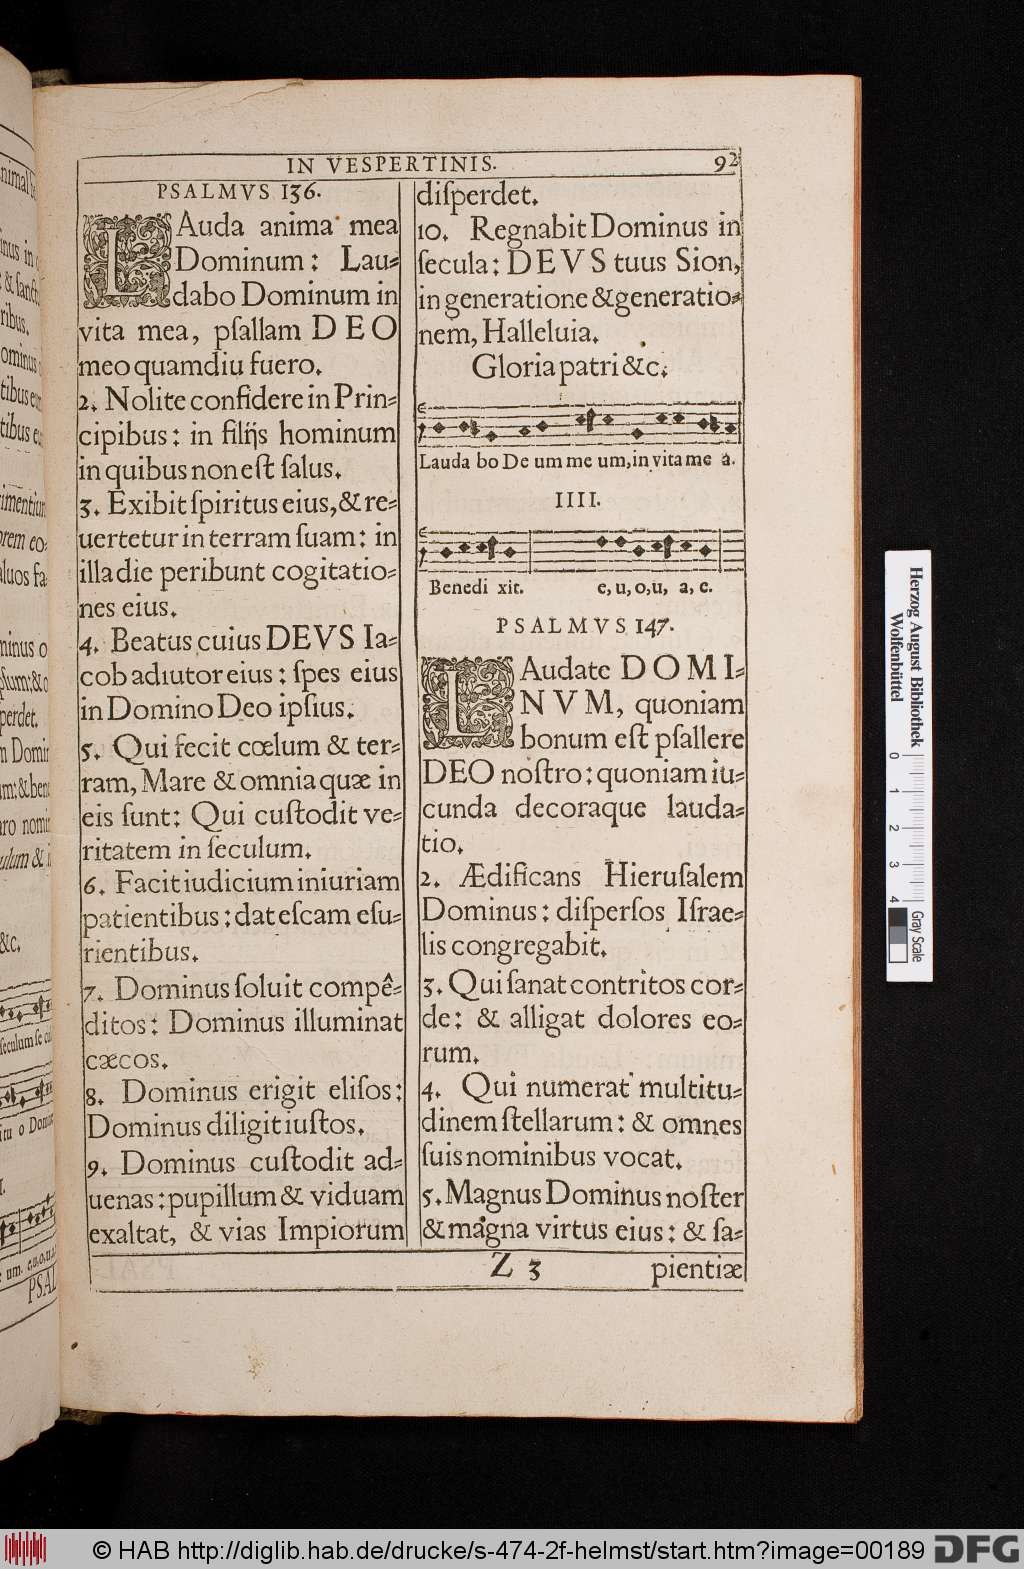 IN VESPERTINIS. 92
PSALMVS 136.
LAuda anima mea
Dominum: Lau-
dabo Dominum in
vita mea, pſallam DEO
meo quamdiu fuero.
2. Nolite confidere in Prin-
cipibus: in filijs hominum
in quibus non eſt ſalus.
3. Exibit ſpiritus eius, & re-
uertetur in terram ſuam: in
illa die peribunt cogitatio-
nes eius.
4. Beatus cuius DEVS Ia-
cob adiutor eius: ſpes eius
in Domino Deo ipſius.
5. Qui fecit cœlum & ter-
ram, Mare & omnia quæ in
eis ſunt: Qui cuſtodit ve-
ritatem in ſeculum.
6. Facit iudicium iniuriam
patientibus: dat eſcam eſu-
rientibus.
7. Dominus ſoluit compê-
ditos: Dominus illuminat
cæcos.
8. Dominus erigit eliſos:
Dominus diligit iuſtos.
9. Dominus cuſtodit ad-
uenas: pupillum & viduam
exaltat, & vias Impiorum
diſperdet.
10. Regnabit Dominus in
ſecula: DEVS tuus Sion,
in generatione & generatio-
nem, Halleluia.
Gloria patri &c.
Lauda bo De um me um, in vita me a.
IIII.
Benedi xit. e, u, o, u, a, e.
PSALMVS 147.
LAudate DOMI-
NVM, quoniam
bonum eſt pſallere
DEO noſtro: quoniam iu-
cunda decoraque lauda-
tio.
2. Ædificans Hieruſalem
Dominus: diſperſos Iſrae-
lis congregabit.
3. Qui ſanat contritos cor-
de: & alligat dolores eo-
rum.
4. Qui numerat multitu-
dinem ſtellarum: & omnes
ſuis nominibus vocat.
5. Magnus Dominus noſter
& magna virtus eius: & ſa-
Z 3 pientiæ
Herzog August Bibliothek
Wolfenbüttel
0 1 2 3 4
Gray Scale
© HAB http://diglib.hab.de/drucke/s-474-2f-helmst/start.htm?image=00189
DFG